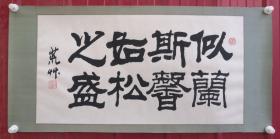 似蘭
斯馨
如松
之盛